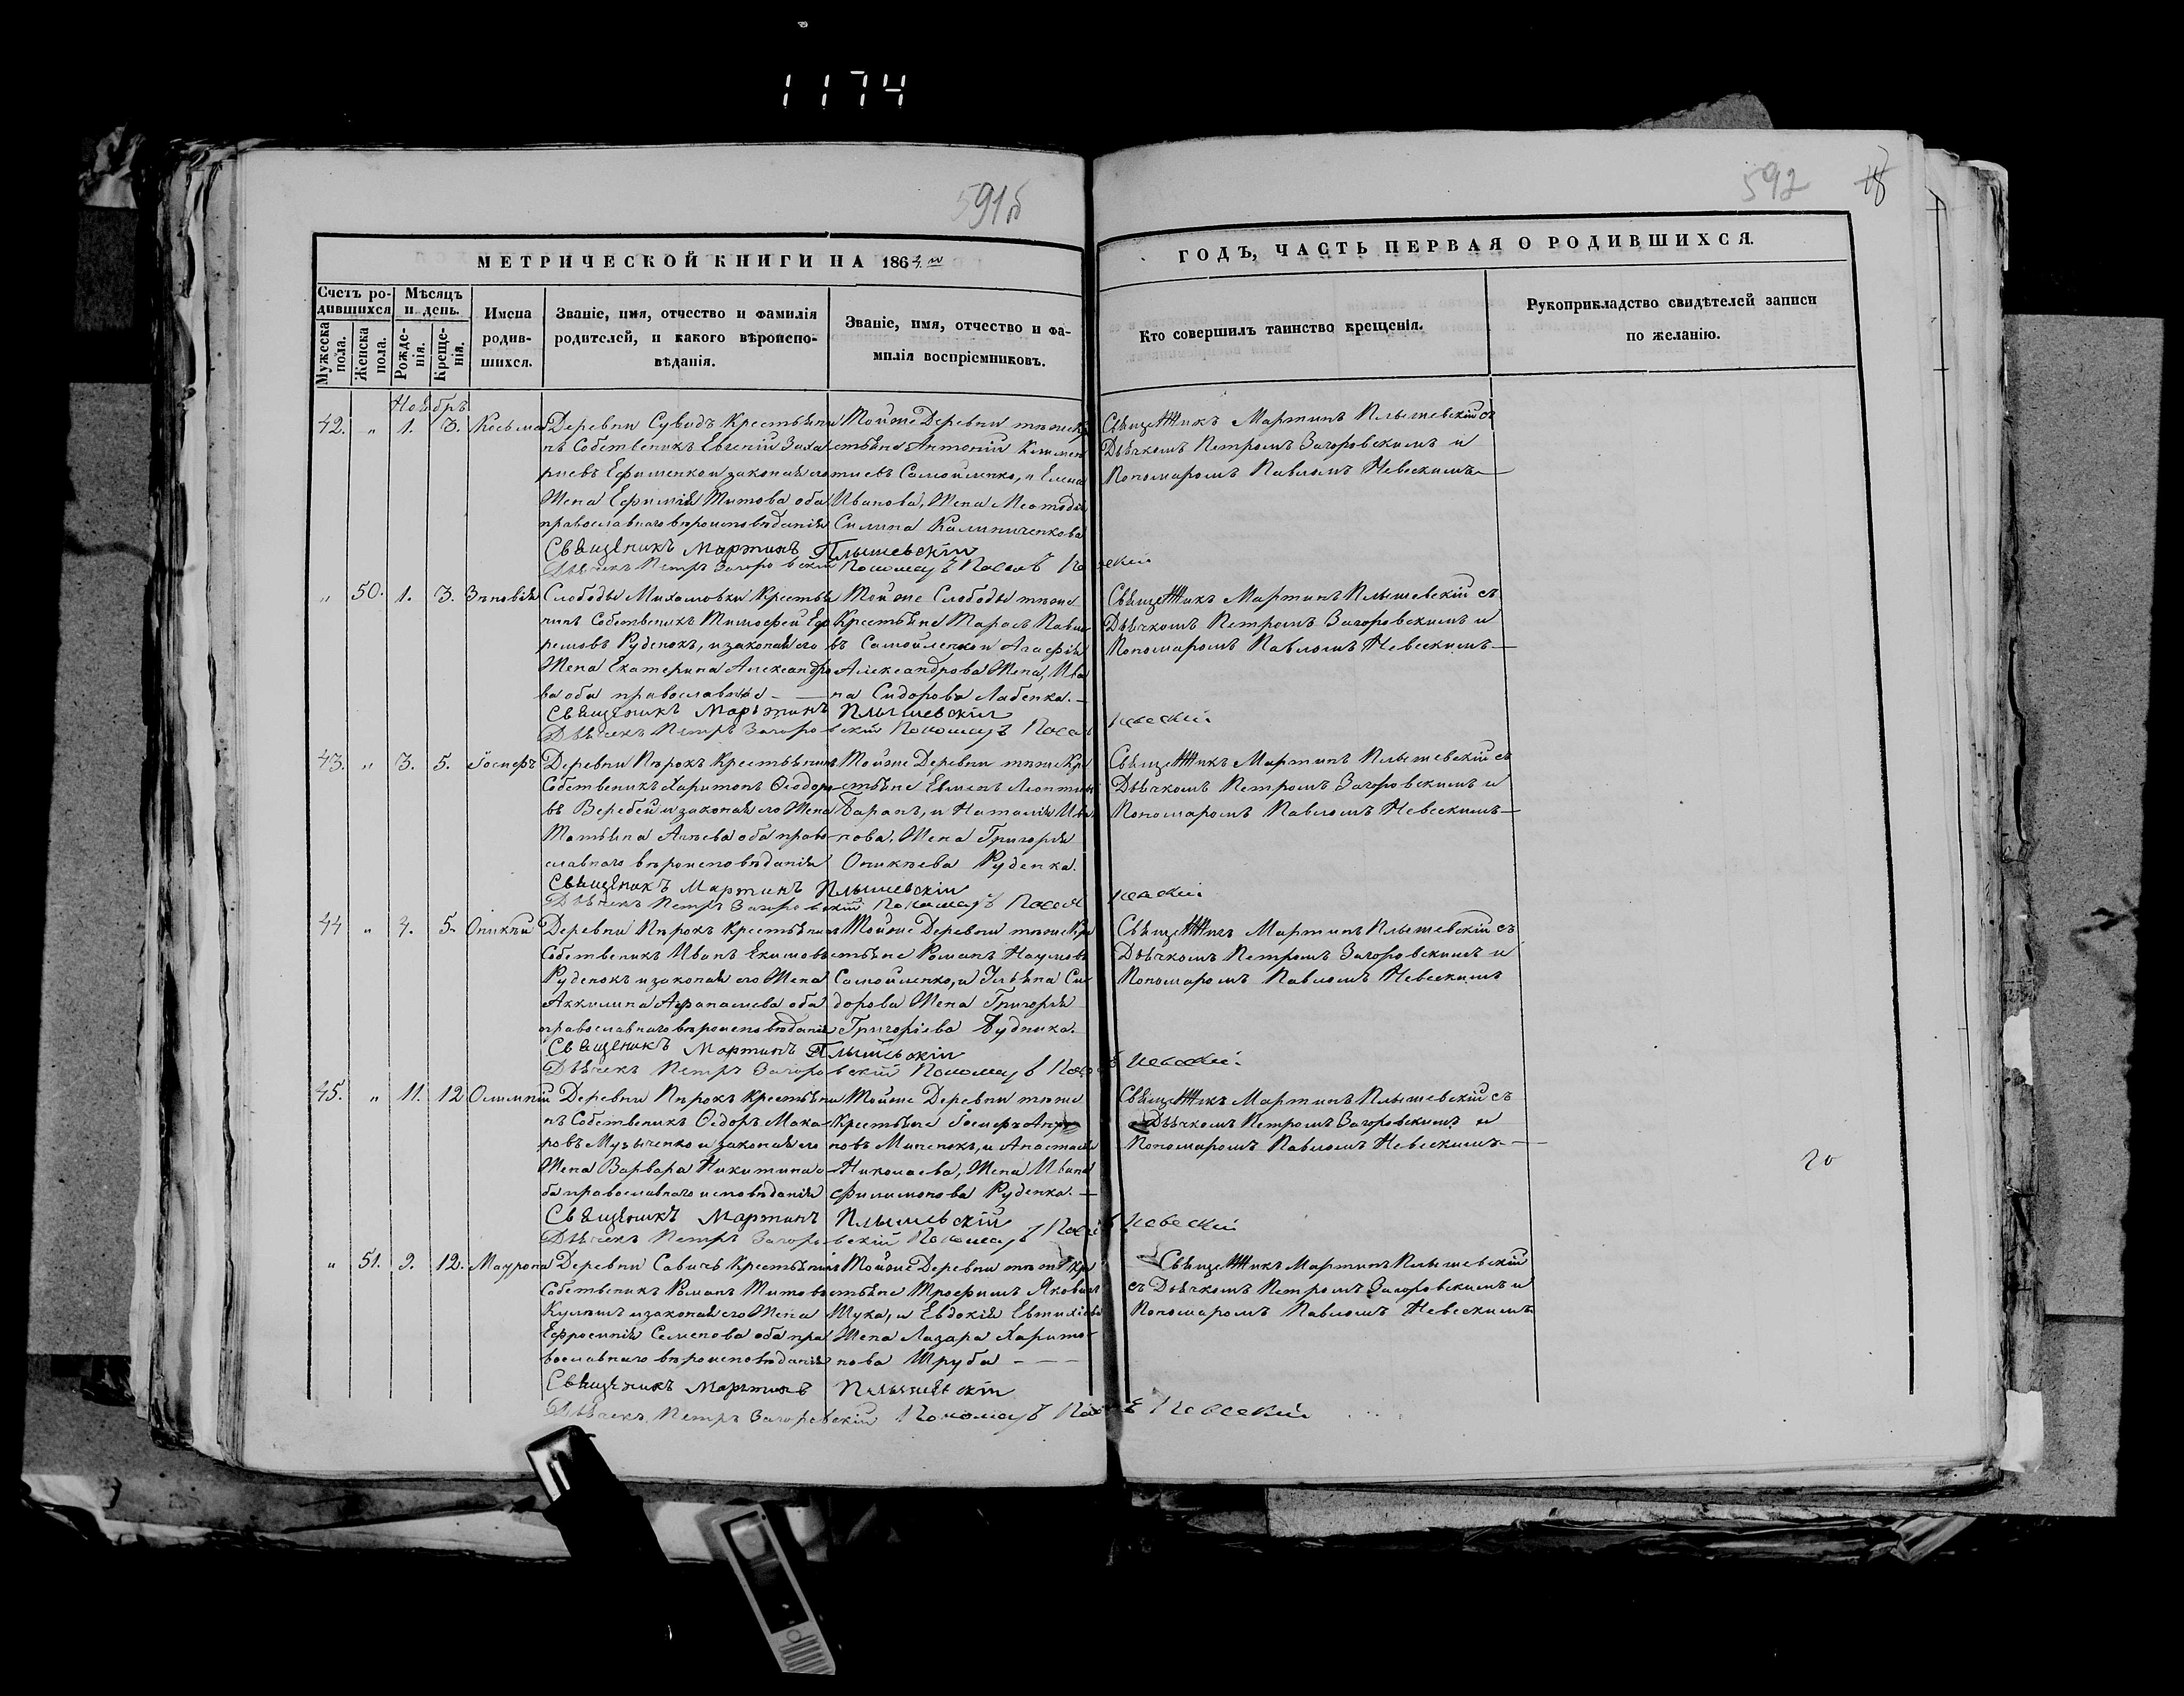 1174
591б
592
18
МЕТРИЧЕСКОЙ КНИГИ НА 1864.й
ГОДЪ, ЧАСТЬ ПЕРВАЯ О РОДИВШИХСЯ.
Счетъ ро-
дившихся
Мужеска
пола.
Женска
пола.
Мѣсяцъ
и день.
Рожде-
нія.
Креще-
нія.
Имена
родив-
шихся.
Званіе, имя, отчество и фамилія
родителей, и какого вѣроиспо-
вѣданія.
Званіе, имя, отчество и фа-
милія воспріемниковъ.
Кто совершилъ таинство крещенія.
Рукоприкладство свидѣтелей записи
по желанію.
Ноябрь
42. „ 1. 3. Косьма
Деревни Сувидъ Крестьяни
нъ Собственикъ Евгеній Заха
ріевъ Ефименко и законая его
Жена Ефимія Титова оба
православнаго вѣроисповѣданія
Тойже Деревни тоже Кр
стьяне Антоній Климен
тіевъ Самойленко, и Елена
Иванова, Жена Меѳодія
Силина Калиниченкова
Священникъ Мартинъ Плышевскій съ
Дьячкомъ Петромъ Загоровскимъ и
Пономаромъ Павломъ Невескимъ
Священикъ Мартинъ Плышевскій
Дьячекъ Петръ Загоровскій Пономаръ Павелъ Невескій
„ 50. 1. 3. Зѣновія
Слободы Михаловки Крестья
нинъ Собственикъ Тимофей Еф
ремовъ Руденокъ, и законая его
Жена Екатерина Александро
ва оба православные
Тойже Слободы тоже
Крестьяне Тарасъ Павло
въ Самойленко и Агафія
Александрова Жена, Ива
на Сидорова Лабенка.
Священникъ Мартинъ Плышевскій съ
Дьячкомъ Петромъ Загоровскимъ и
Пономаромъ Павломъ Невескимъ
Священикъ Мартинъ Плышевскій
Дьячекъ Петръ Загоровскій Пономаръ Павелъ Невескій
43. „ 3. 5. Іосифъ
Деревни Пѣрокъ Крестьянинъ
Собственикъ Харитонъ Ѳедоро
въ Веребей и законая его Жена
Татьяна Агѣева оба право
славнаго вѣроисповѣданія
Тойже Деревни тоже Кре
стьяне Евменъ Леонтіев
Баранъ, и Наталія Ива
нова, Жена Григорія
Оникѣева Руденка.
Священникъ Мартинъ Плышевскій съ
Дьячкомъ Петромъ Загоровскимъ и
Пономаромъ Павломъ Невескимъ
Священикъ Мартинъ Плышевскій
Дьячекъ Петръ Загоровскій Пономаръ Павелъ Невескій
44 „ 4. 5. Оникѣй
Деревни Пѣрокъ Крестьянинъ
Собственикъ Иванъ Екимовъ
Руденокъ и законая его Жена
Аккилина Афанасіева оба
православнаго вѣроисповѣданія
Тойже Деревни тоже Кре
стьяне Романъ Наумовъ
Самойленко, и Ульяна Си
дорова Жена Григорія
Григоріева Будника.
Священникъ Мартинъ Плышевскій съ
Дьячкомъ Петромъ Загоровскимъ и
Пономаромъ Павломъ Невескимъ
Священикъ Мартинъ Плышевскій
Дьячекъ Петръ Загоровскій Пономаръ Павелъ Невескій.
45. „ 11. 12 Олимпій
Деревни Пѣрокъ Крестьяни
нъ Собственикъ Ѳедоръ Мака
ровъ Музыченко и законая его
Жена Варвара Никитина о
ба православнаго исповѣданія
Тойже Деревни тоже
Крестьяне Іосифъ
новъ Миненокъ, и Анастасія
Николаева, Жена Ивана
Филимонова Руденка.
Священникъ Мартинъ Плышевскій съ
Дьячкомъ Петромъ Загоровскимъ и
Пономаромъ Павломъ Невескимъ
20
Священикъ Мартинъ Плышевскій
Дьячекъ Петръ Загоровскій Пономаръ Павелъ Невескій
„ 51. 9. 12. Маврона
Деревни Савичъ Крестьянинъ
Собственикъ Романъ Титовъ
Кулишъ и законая его Жена
Ефросинія Семенова оба пра
вославнаго вѣроисповѣданія
Тойже Деревни тоже Кре
стьяне Трофимъ Яковлев
Щука, и Евдокія Евтихіева
Жена Лазара Харито
нова Шруба
Священникъ Мартинъ Плышевскій
съ Дьячкомъ Петромъ Загоровскимъ и
Пономаромъ Павломъ Невескимъ
Священикъ Мартинъ Плышевскій
Дьячекъ Петръ Загоровскій Пономаръ Павелъ Невескій